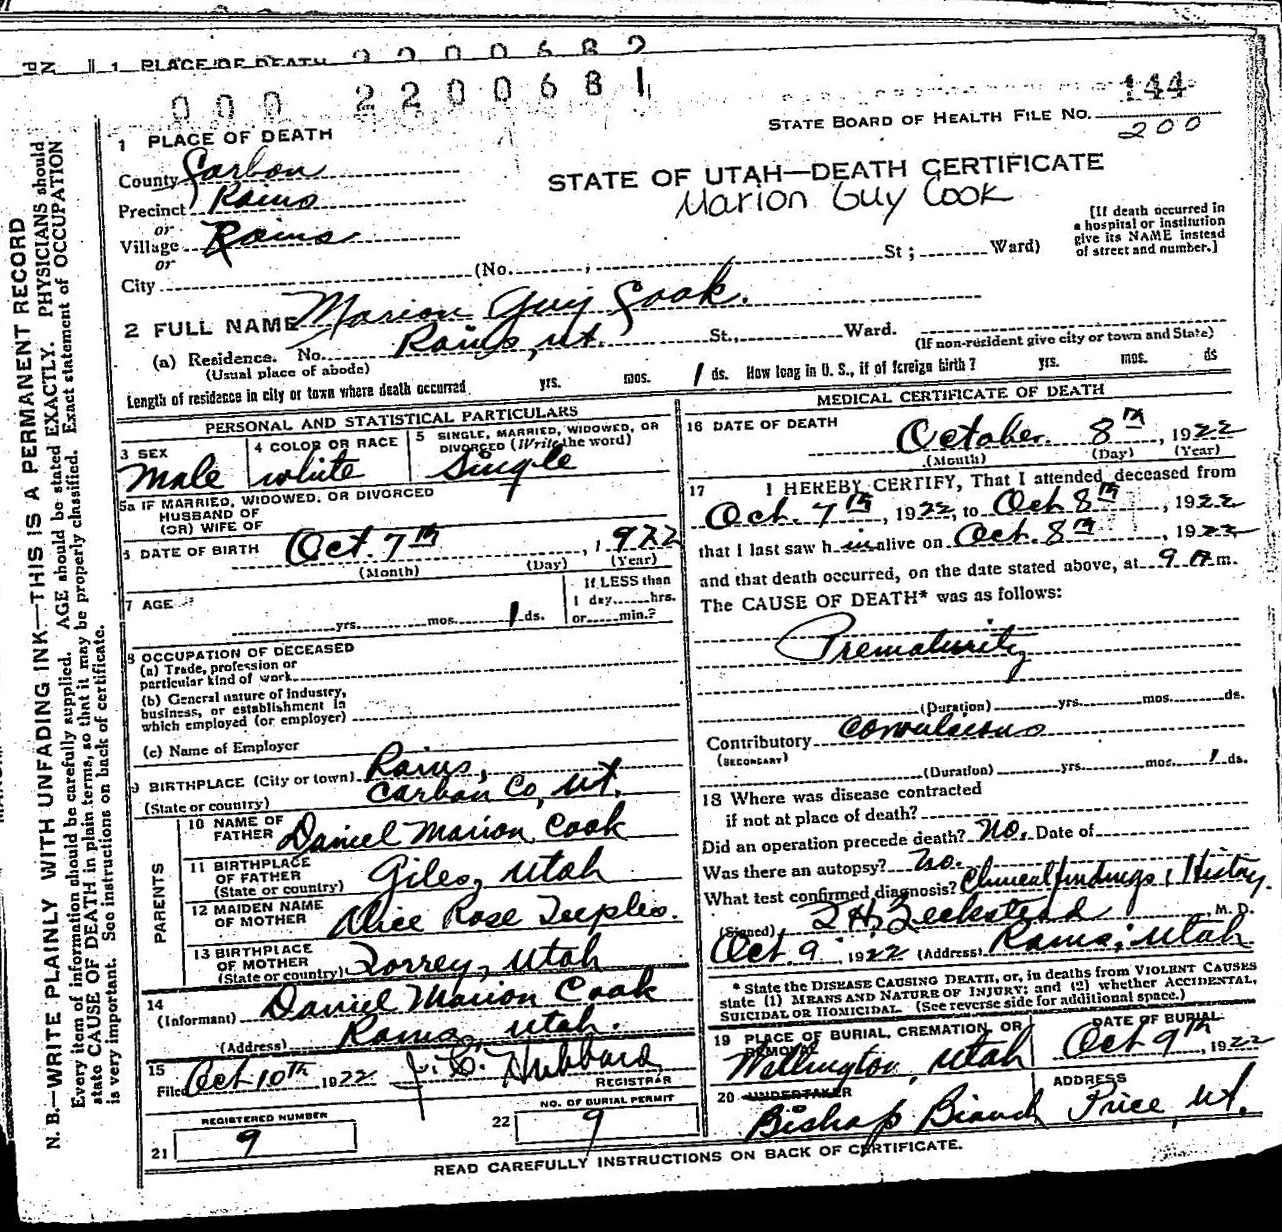 1 PLACE OF DEATH 2 2 0 0 6 8 2
0 0 0 2 2 0 0 6 8 1
144
STATE BOARD OF HEALTH FILE NO.
200
1 PLACE OF DEATH
County Carbon
Precinct Rains
or
Village Rains
or
City (No. ; St ; Ward)
STATE OF UTAH—DEATH CERTIFICATE
Marion Guy Cook
[If death occurred in
a hospital or institution
give its NAME instead
of street and number.]
2 FULL NAME Marion Guy Cook.
(a) Residence. No. Rains, Ut. St., Ward.
(Usual place of abode)
(If non-resident give city or town and State)
Length of residence in city or town where death occurred yrs. mos. 1 ds. How long in U. S., if of foreign birth? yrs. mos. ds
PERSONAL AND STATISTICAL PARTICULARS
3 SEX
Male
4 COLOR OR RACE
white
5 SINGLE, MARRIED, WIDOWED, OR
DIVORCED (Write the word)
Single
5a IF MARRIED, WIDOWED, OR DIVORCED
HUSBAND OF
(OR) WIFE OF
6 DATE OF BIRTH Oct. 7th, 1922
(Month) (Day) (Year)
7 AGE
yrs. mos. 1 ds.
If LESS than
1 day hrs.
or min.?
8 OCCUPATION OF DECEASED
(a) Trade, profession or
particular kind of work
(b) General nature of industry,
business, or establishment in
which employed (or employer)
(c) Name of Employer
9 BIRTHPLACE (City or town) Rains,
(State or country) Carbon Co, Ut.
PARENTS
10 NAME OF
FATHER Daniel Marion Cook
11 BIRTHPLACE
OF FATHER
(State or country) Giles, Utah
12 MAIDEN NAME
OF MOTHER Alice Rose Teeples.
13 BIRTHPLACE
OF MOTHER
(State or country) Torrey, Utah
14
(Informant) Daniel Marion Cook
(Address) Rains, Utah.
15
Filed Oct 10th 1922 J. C. Hubbard
REGISTRAR
REGISTERED NUMBER
21 9
NO. OF BURIAL PERMIT
22 9
MEDICAL CERTIFICATE OF DEATH
16 DATE OF DEATH
October 8th, 1922
(Month) (Day) (Year)
17 I HEREBY CERTIFY, That I attended deceased from
Oct. 7th, 1922, to Oct 8th, 1922
that I last saw h im alive on Oct. 8th, 1922
and that death occurred, on the date stated above, at 9 A m.
The CAUSE OF DEATH* was as follows:
Prematurity
(Duration) yrs. mos. ds.
Contributory convulsions
(SECONDARY)
(Duration) yrs. mos. 1 ds.
18 Where was disease contracted
if not at place of death?
Did an operation precede death? No. Date of
Was there an autopsy? No.
What test confirmed diagnosis? Clinical findings & History.
(Signed) Beckstead M. D.
Oct. 9, 1922 (Address) Rains, Utah
* State the DISEASE CAUSING DEATH, or, in deaths from VIOLENT CAUSES
state (1) MEANS AND NATURE OF INJURY; and (2) whether ACCIDENTAL,
SUICIDAL OR HOMICIDAL. (See reverse side for additional space.)
19 PLACE OF BURIAL, CREMATION, OR
REMOVAL
Wellington, Utah
DATE OF BURIAL
Oct 9th, 1922
20 UNDERTAKER
Bishop Bianch
ADDRESS
Price, Ut.
READ CAREFULLY INSTRUCTIONS ON BACK OF CERTIFICATE.
N. B.—WRITE PLAINLY WITH UNFADING INK—THIS IS A PERMANENT RECORD
Every item of information should be carefully supplied. AGE should be stated EXACTLY. PHYSICIANS should
state CAUSE OF DEATH in plain terms, so that it may be properly classified. Exact statement of OCCUPATION
is very important. See instructions on back of certificate.